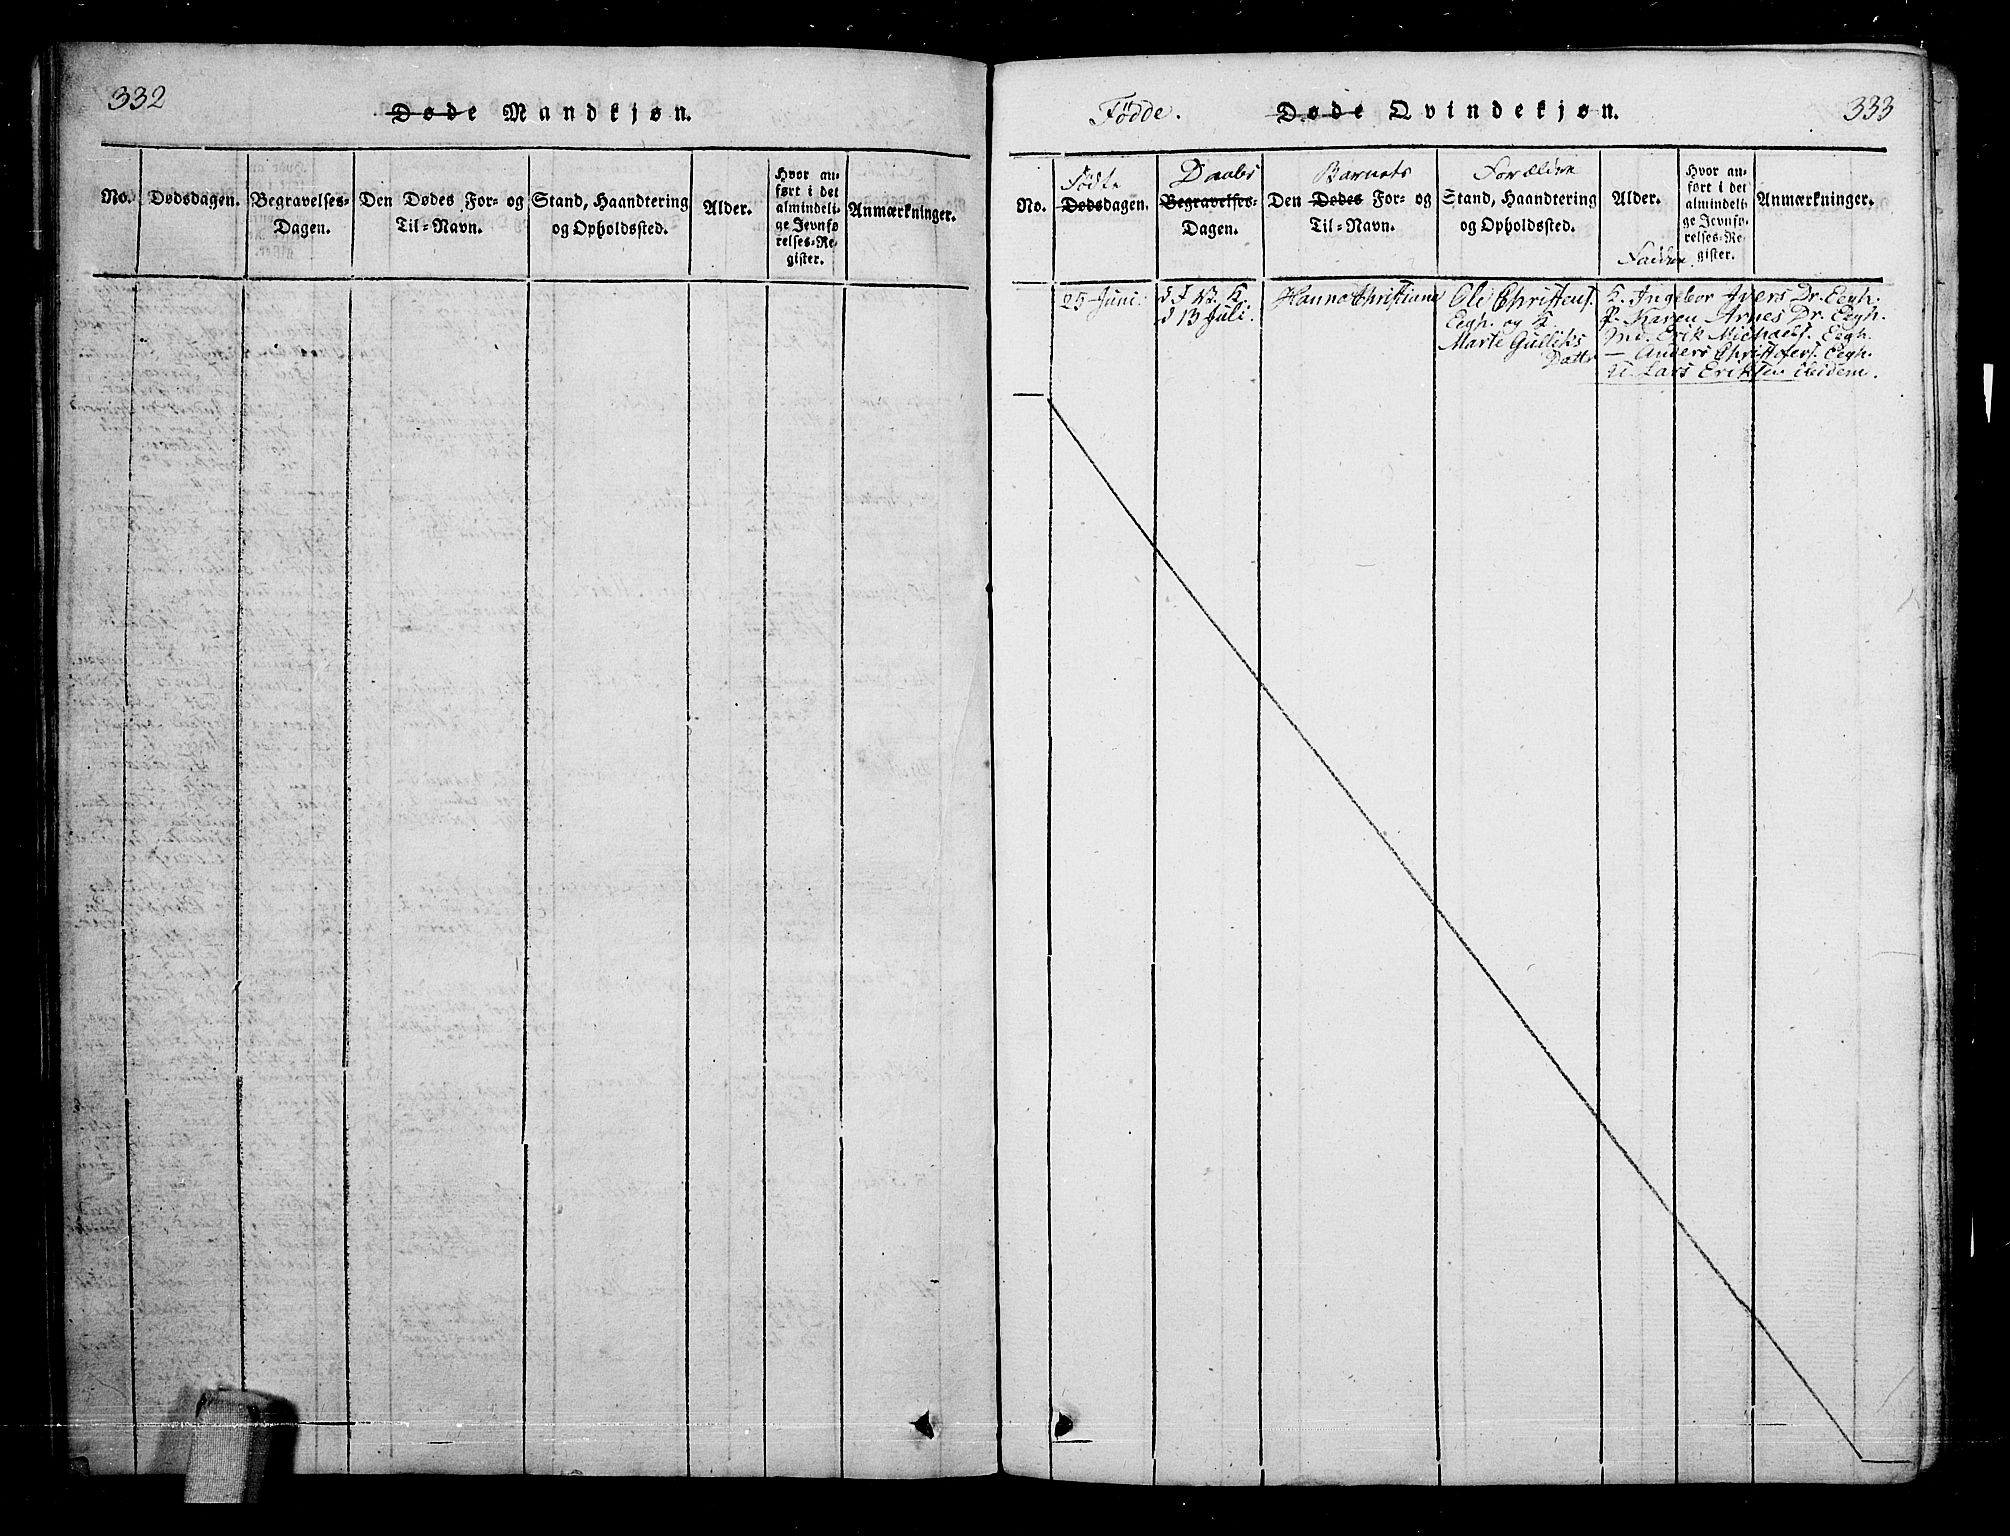 332
Døde Mandkjøn.
No.
Dødsdagen.
Begravelses-
Dagen.
Den Dødes For- og
Til-Navn.
Stand, Haandtering
og Opholdssted.
Alder.
Hvor an-
ført i det
almindeli-
ge Jevnfø-
relses-Re-
gister.
Anmærkninger.
Fødde.
Døde Qvindekjøn.
333
No.
Fødte
Dødsdagen.
Daabs
Begravelses-
Dagen.
Barnets
Den Dødes For- og
Til-Navn.
Forældrene
Stand, Haandtering
og Opholdssted.
Alder.
Faddere.
Hvor an-
ført i det
almindeli-
ge Jevnfø-
relses-Re-
gister.
Anmærkninger.
25 Juni.
d 13 Juli.
Hanna Christiane
Ole Christens.
Eegh. og K.
Marte Gulliks
Dattr
K. Ingebor Ivers Dr. Eegh.
P. Karen Arnes Dr. Eegh.
M. Erik Michaels. Eegh.
— Anders Christofers. Eegh.
U. Lars Eriksen ibidem.